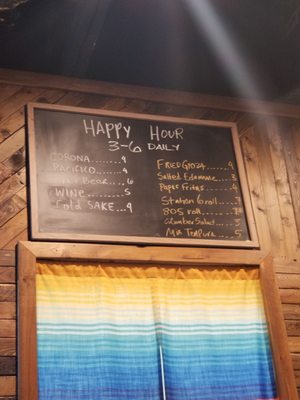 HAPPY HOUR
3-6 DAILY
CORONA........4
PACIFICO......4
Beer.....6
WINE.........5
Cold SAKE.....4
FRIED Gyoza......4
Salted Edamame...3
Paper Fritas.....4
Station 6 roll....7
805 roll.......7
Cucumber Salad....3
Mix Tempura....5